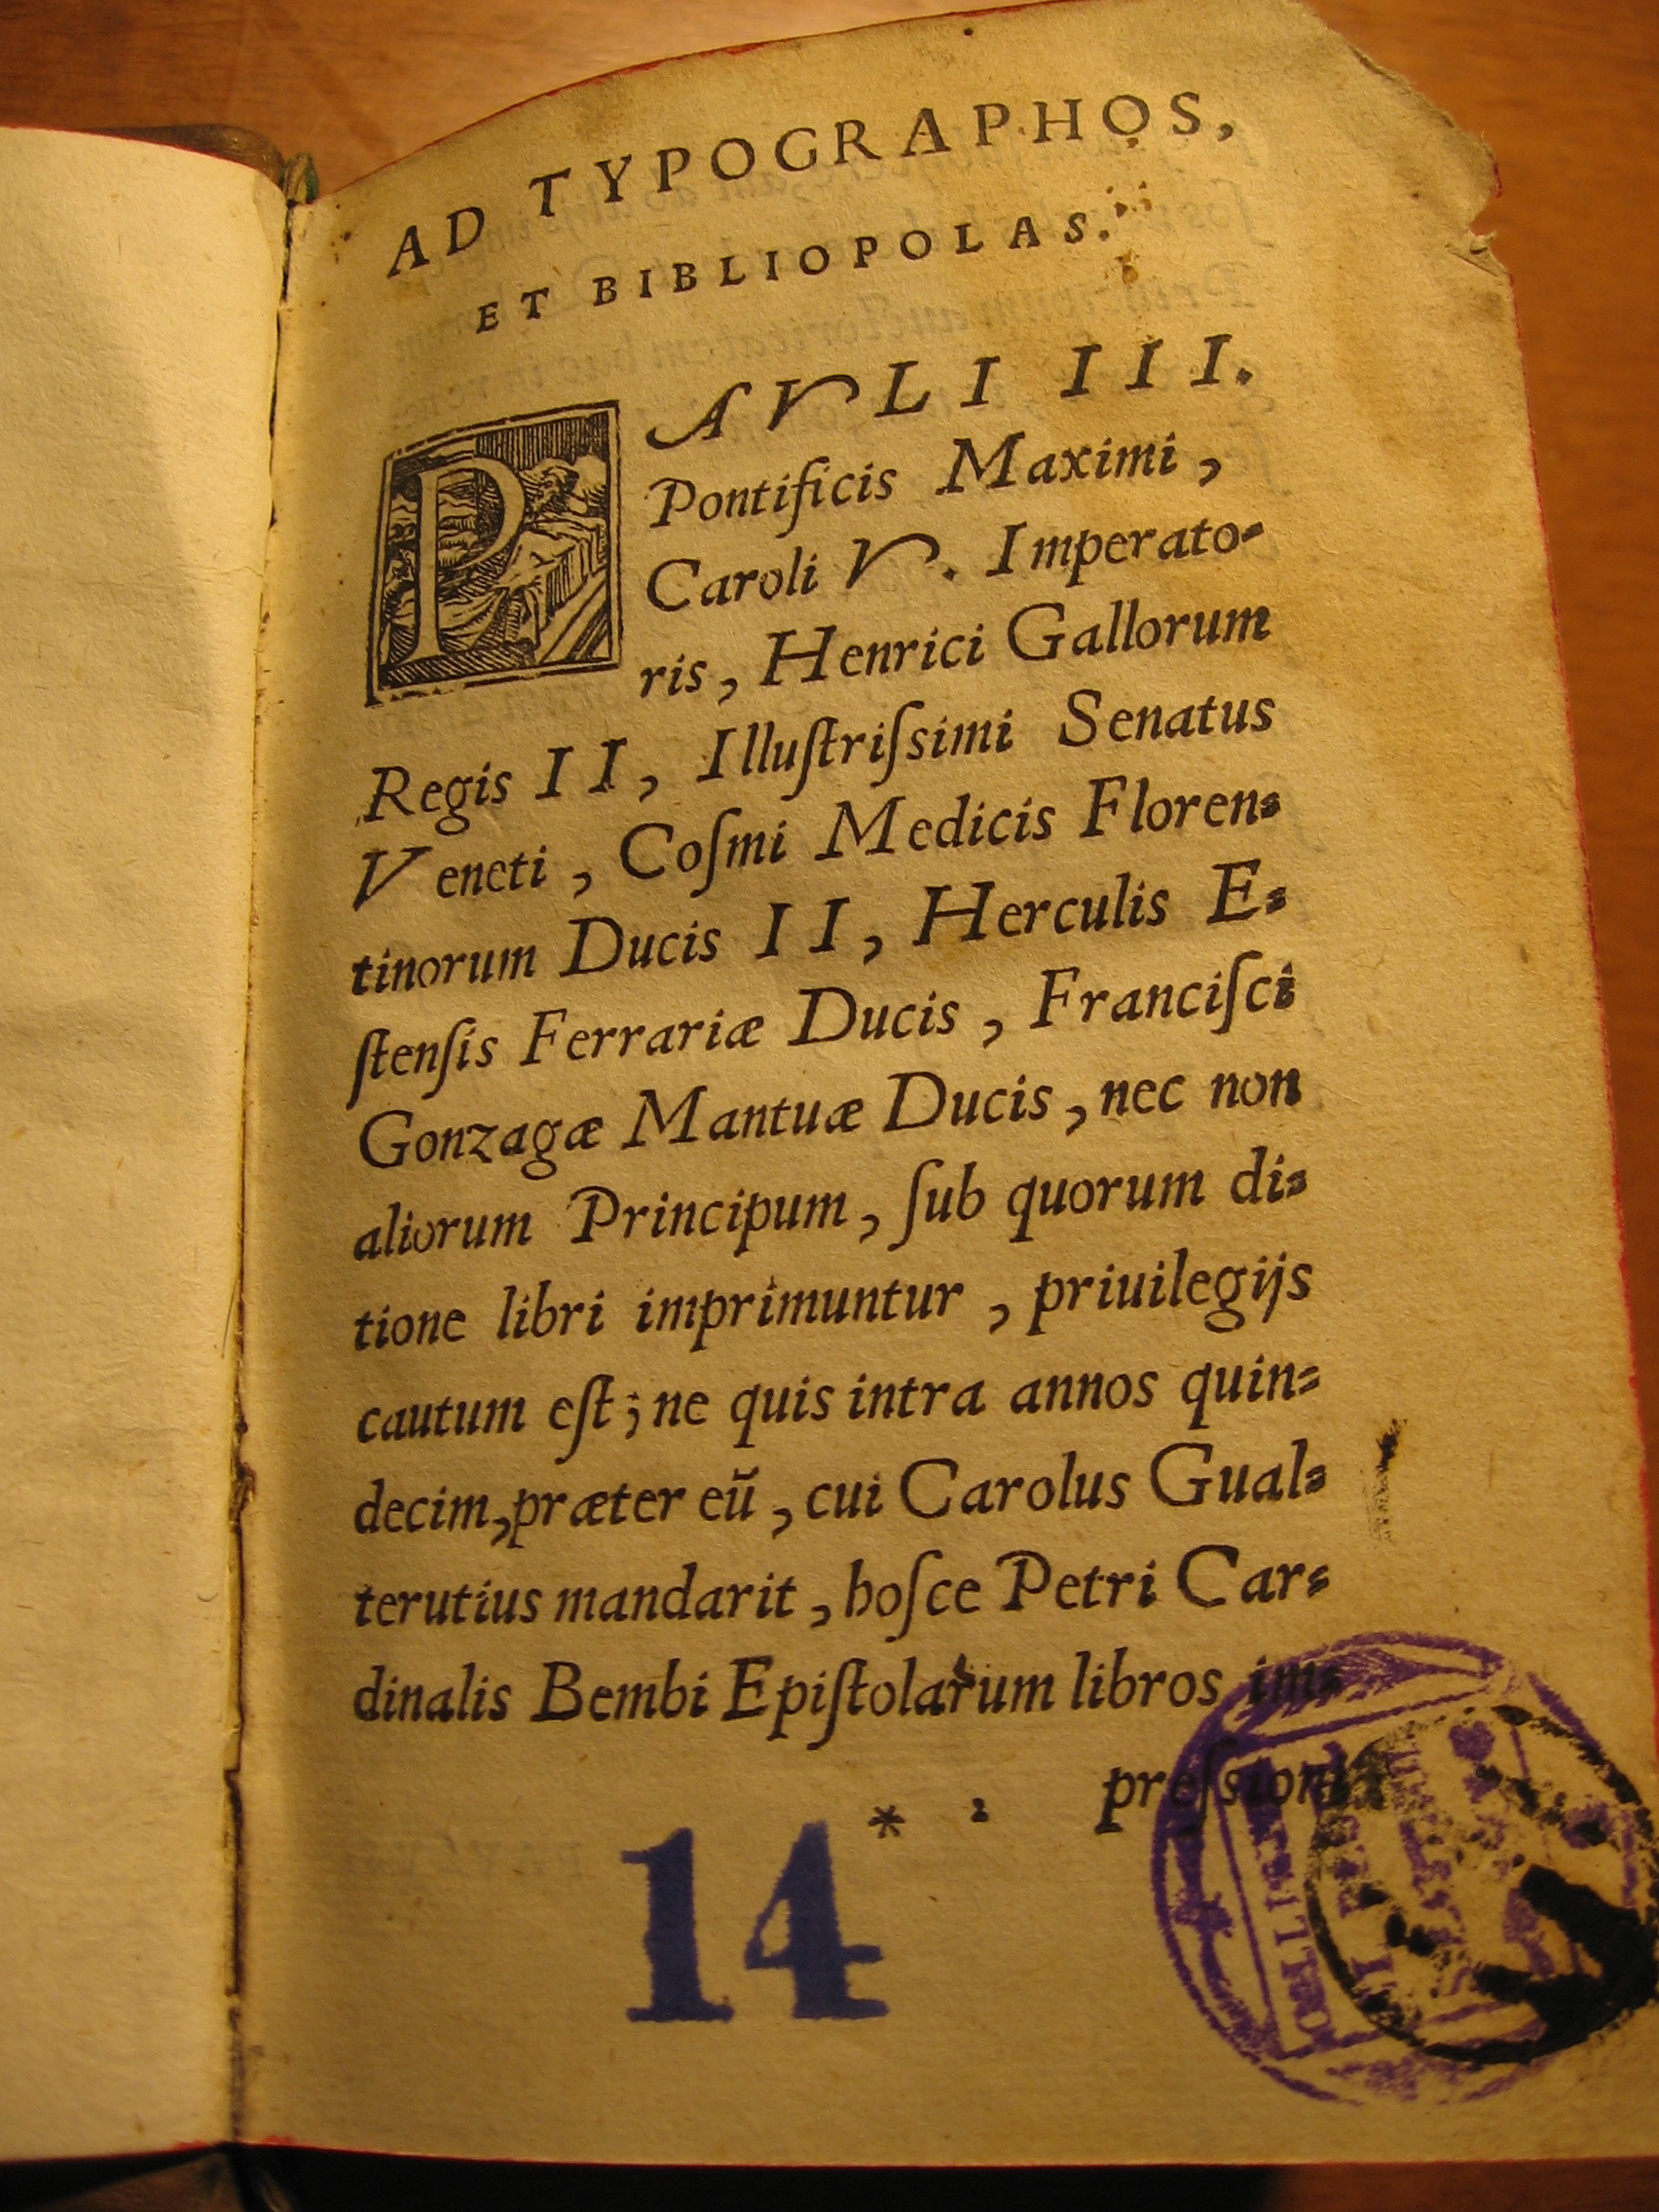 AD TYPOGRAPHOS,
ET BIBLIOPOLAS.
PAVLI III.
Pontificis Maximi,
Caroli V. Imperato-
ris, Henrici Gallorum
Regis II, Illuſtriſsimi Senatus
Veneti, Coſmi Medicis Floren-
tinorum Ducis II, Herculis E-
ſtenſis Ferrariæ Ducis, Franciſci
Gonzagæ Mantuæ Ducis, nec non
aliorum Principum, ſub quorum di-
tione libri imprimuntur, priuilegijs
cautum eſt; ne quis intra annos quin-
decim, præter eũ, cui Carolus Gual-
terutius mandarit, hoſce Petri Car-
dinalis Bembi Epiſtolarum libros im-
* 2 preſsioni
14